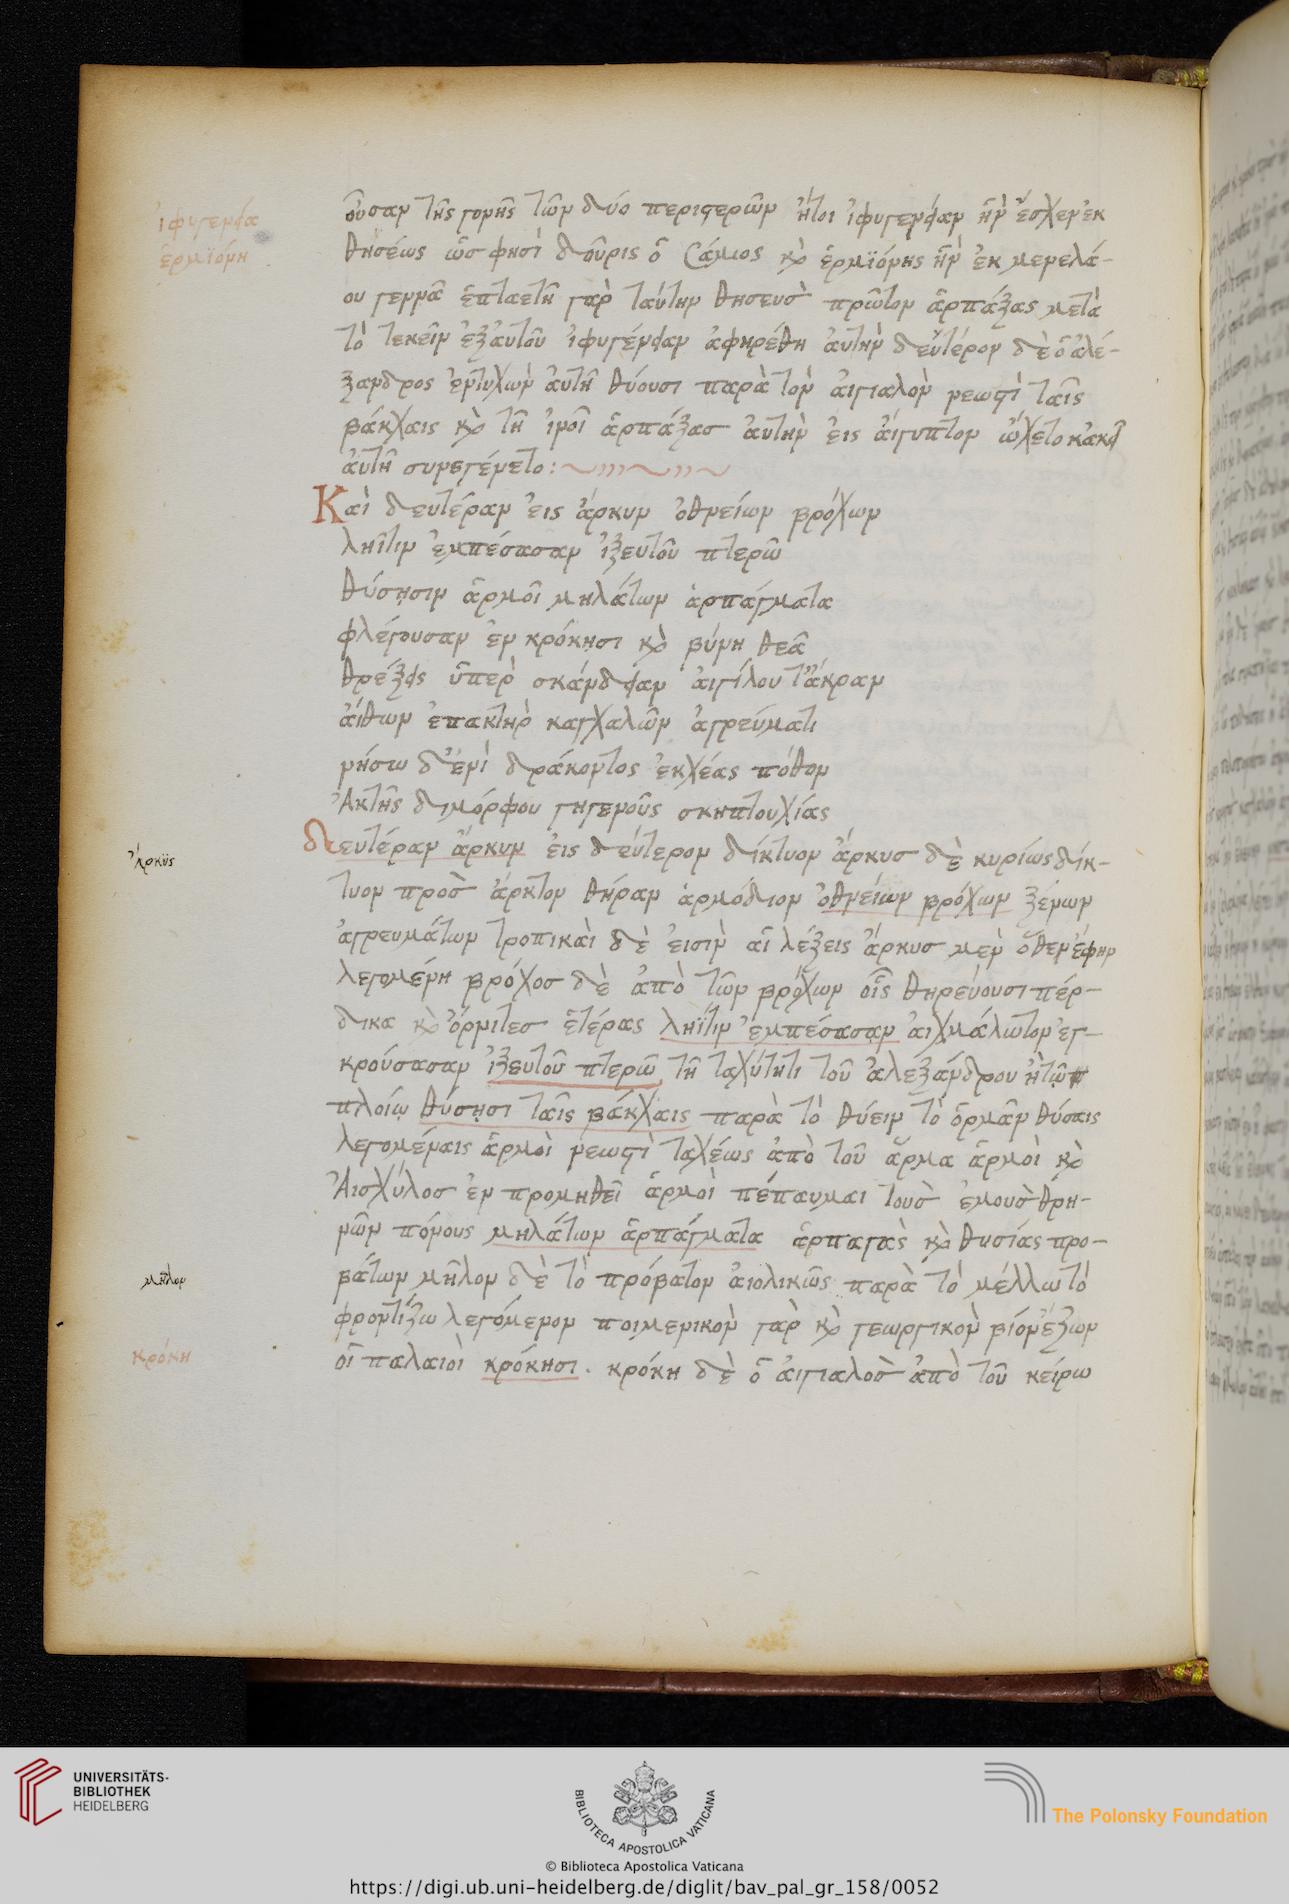 ἰφιγενεία
ἑρμϊόνη
οὖσαν τῆς γονῆς τῶν δύο περιστερῶν ἤτοι ἰφιγενείαν ἣν ἔσχεν ἐκ
θησέως ὥς φησὶ δοῦρις ὁ Σάμιος καὶ ἑρμϊόνης ἣν ἐκ μενελά-
ου γεννᾶ ἑπταετῆ γὰρ ταύτην θησεὺς πρῶτον ἁρπάξας μετὰ
τὸ τεκεῖν ἐξ αὐτοῦ ἰφιγένειαν ἀφηρέθη αὐτὴν δεύτερον δὲ ὁ ἀλέ-
ξανδρος ἐντυχὼν αὐτῆ θύουσι παρὰ τὸν αἰγιαλὸν νεωστὶ ταῖς
βάκχαις καὶ τῆ ἰνοῖ ἁρπάξας αὐτὴν εἰς αἴγυπτον ὤχετο κἀκεῖ
αὐτῆ συνεγένετο:
Καὶ δευτέραν εἰς ἄρκυν ὀθνείων βρόχων
ληῖτιν ἐμπέσασαν ἰξευτοῦ πτερῶ
θύσῃσιν ἁρμοῖ μηλάτων ἁρπάγματα
φλέγουσαν ἐν κρόκῃσι καὶ βύνη θεᾶ
θρέξεις ὑπὲρ σκάνδειαν αἰγίλου τ' ἄκραν
αἴθων ἐπακτὴρ καγχαλῶν ἀγρεύματι
νήσω δ' ἐνὶ δράκοντος ἐκχέας πόθον
Ἀκτῆς διμόρφου γηγενοῦς σκηπτουχίας
ἄρκϋς
δευτέραν ἄρκυν εἰς δεύτερον δίκτυον ἄρκυς δὲ κυρίως δίκ-
τυον πρὸς ἄρκτον θήραν ἁρμόδιον ὀθνείων βρόχων ξένων
ἀγρευμάτων τροπικαὶ δὲ εἰσὶν αἱ λέξεις ἄρκυς μὲν ὅθεν ἔφην
λεγομένη βρόχος δὲ ἀπὸ τῶν βρόχων οἷς θηρεύουσι πέρ-
δικα καὶ ὄρνιτες ἑτέρας ληῖτιν ἐμπέσασαν αἰχμάλωτον ἐγ-
κρούσασαν ἰξευτοῦ πτερῶ τῆ ταχύτητι τοῦ ἀλεξάνδρου ἢ τῶ
πλοίῳ θύσῃσι ταῖς βάκχαις παρὰ τὸ θύειν τὸ ὁρμᾶν θύσαις
λεγομέναις ἁρμοὶ νεωστὶ ταχέως ἀπὸ τοῦ ἅρμα ἁρμοὶ καὶ
Ἀισχύλος ἐν προμηθεῖ ἁρμοὶ πέπαυμαι τοὺς ἐμοὺς θρη-
νῶν πόνους μηλάτων ἁρπάγματα ἁρπαγὰς καὶ θυσίας προ-
μῆλον
βάτων μῆλον δὲ τὸ πρόβατον αἰολικῶς παρὰ τὸ μέλλω τὸ
φροντίζω λεγόμενον ποιμενικὸν γὰρ καὶ γεωργικὸν βίον ἔζων
κρόκη
οἱ παλαιοὶ κρόκησι. κρόκη δὲ ὁ αἰγιαλὸς ἀπὸ τοῦ κείρω
UNIVERSITÄTS-
BIBLIOTHEK
HEIDELBERG
BIBLIOTECA APOSTOLICA VATICANA
The Polonsky Foundation
© Biblioteca Apostolica Vaticana
https://digi.ub.uni-heidelberg.de/diglit/bav_pal_gr_158/0052